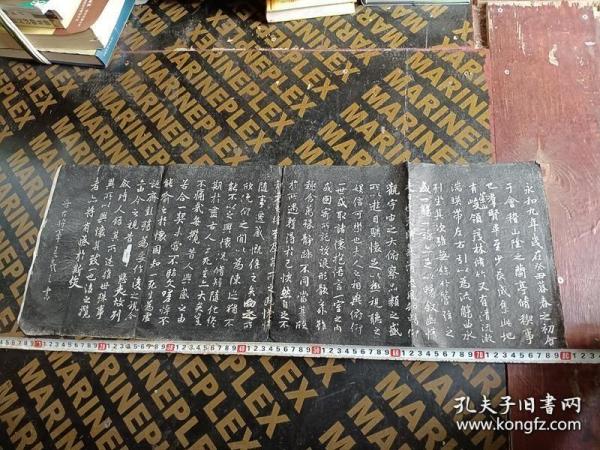 永和九年歲在癸丑暮春之初會
于會稽山陰之蘭亭脩稧事
也羣賢畢至少長咸集此地
有峻領茂林脩竹又有清流激
湍暎帶左右引以為流觴曲水
列坐其次雖無絲竹管弦之
盛一觴一詠亦足以暢叙幽情
觀宇宙之大俯察品類之盛
所以遊目騁懷足以極視聽之
娛信可樂也夫人之相與俯仰
一世或取諸懷抱悟言一室之內
或因寄所託放浪形骸之外雖
趣舍萬殊靜躁不同當其欣
於所遇暫得於己怏然自足不
隨事遷感慨係之矣向之所
欣俛仰之間以為陳迹猶不
能不以之興懷況脩短隨化終
期於盡古人云死生亦大矣豈
不痛哉每攬昔人興感之由
若合一契未嘗不臨文嗟悼不
能喻之於懷固知一死生為虛
誕齊彭殤為妄作後之視今
亦由今之視昔悲夫故列
叙時人錄其所述雖世殊事
異所以興懷其致一也後之攬
者亦將有感於斯文
書
MARINEPLEX
孔夫子旧书网
www.kongfz.com